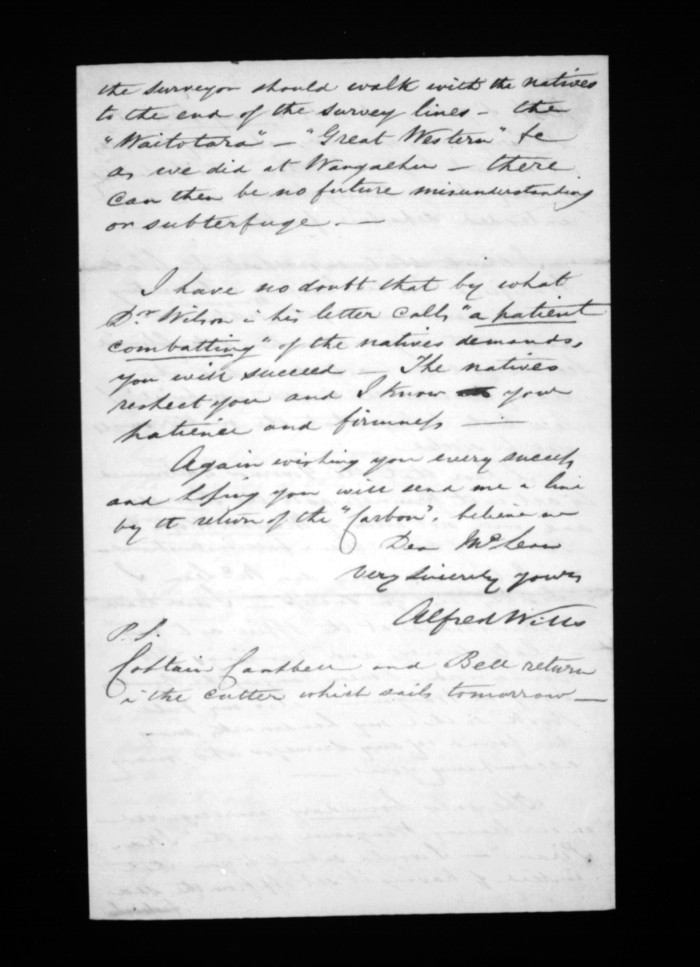 the surveyor should walk with the natives
to the end of the survey lines - the
"Waitotara" - "Great Western" &c
as we did at Wangaehu - there
can then be no future misunderstanding
or subterfuge. -
I have no doubt that by what
Dr Wilson i his letter calls "a patient
combatting" of the natives demands,
you will succeed - The natives
respect you and I know your
patience and firmness -
Again wishing you every success
and hoping you will send me a line
by the return of the "Carbon", believe me
Dear McLean
Very sincerely yours
Alfred Wills
P.S.
Captain Campbell and Bell return
i the cutter which sails tomorrow -